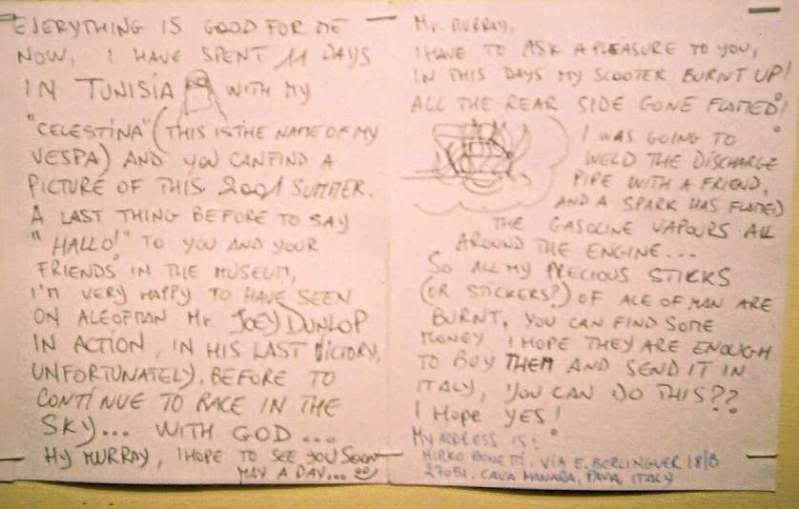 EVERYTHING IS GOOD FOR ME
NOW, I HAVE SPENT 11 DAYS
IN TUNISIA WITH MY
"CELESTINA" (THIS IS THE NAME OF MY
VESPA) AND YOU CAN FIND A
PICTURE OF THIS 2001 SUMMER.
A LAST THING BEFORE TO SAY
"HALLO!" TO YOU AND YOUR
FRIENDS IN THE MUSEUM,
I'M VERY HAPPY TO HAVE SEEN
ON ALE OF MAN Mr. JOEY DUNLOP
IN ACTION, IN HIS LAST VICTORY,
UNFORTUNATELY, BEFORE TO
CONTINUE TO RACE IN THE
SKY... WITH GOD...
MY MURRAY, I HOPE TO SEE YOU SOON
MAY A DAY...
Mr. MURRAY,
I HAVE TO ASK A PLEASURE TO YOU,
IN THIS DAYS MY SCOOTER BURNT UP!
ALL THE REAR SIDE GONE FLAMED!
I WAS GOING TO
WELD THE DISCHARGE
PIPE WITH A FRIEND,
AND A SPARK HAS FLAMED
THE GASOLINE VAPOURS ALL
AROUND THE ENGINE...
SO ALL MY PRECIOUS STICKS
(OR STICKERS?) OF ALE OF MAN ARE
BURNT, YOU CAN FIND SOME
MONEY I HOPE THEY ARE ENOUGH
TO BUY THEM AND SEND IT IN
ITALY, YOU CAN DO THIS??
I HOPE YES!
MY ADDRESS IS:
MIRKO VIA E. BERLINGUER 18/B
27051, CAVA MANARA, PAVIA, ITALY